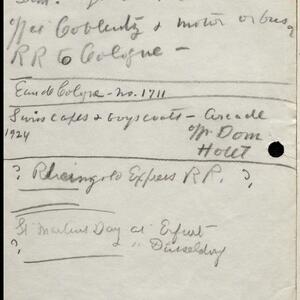 at Coblentz & motor or bus
RR to Cologne -
Eau de Cologne - No. 1711
Swiss capes & boys coats - Arcade
1924 opp. Dom
Hotel
? Rheingold Express R.R. ?
St Martins Day at Erfurt
? " Dusseldorf